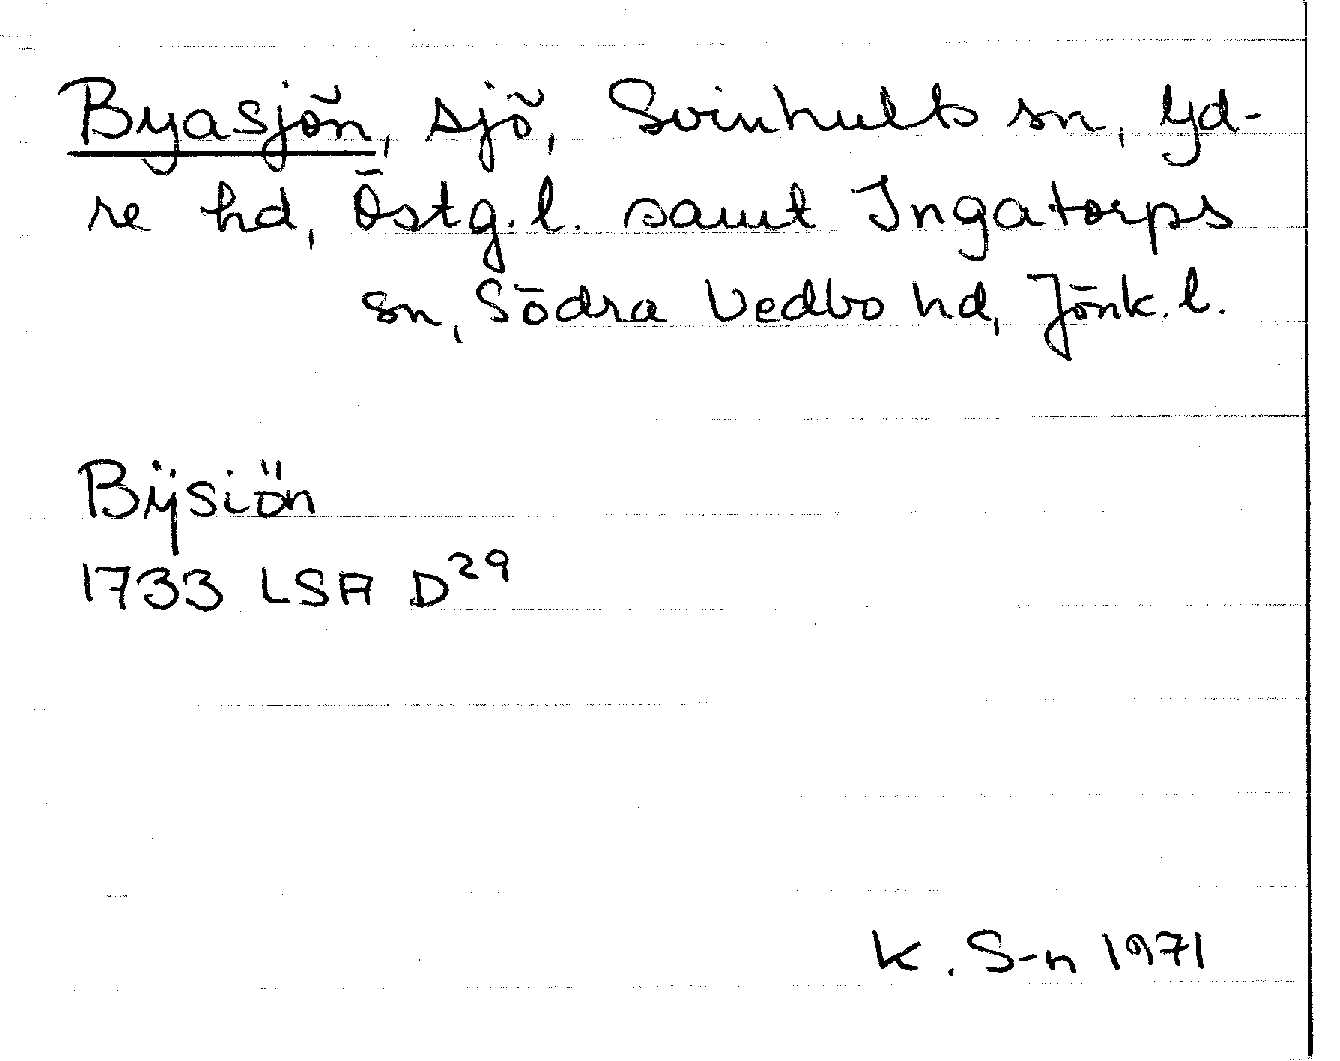 Byasjön, sjö, Svinhults sn, Yd-
re hd, Östg. l. samt Ingatorps
sn, Södra Vedbo hd, Jönk. l.
Bÿsiön
1733 LSA D²⁹
K. S-n 1971